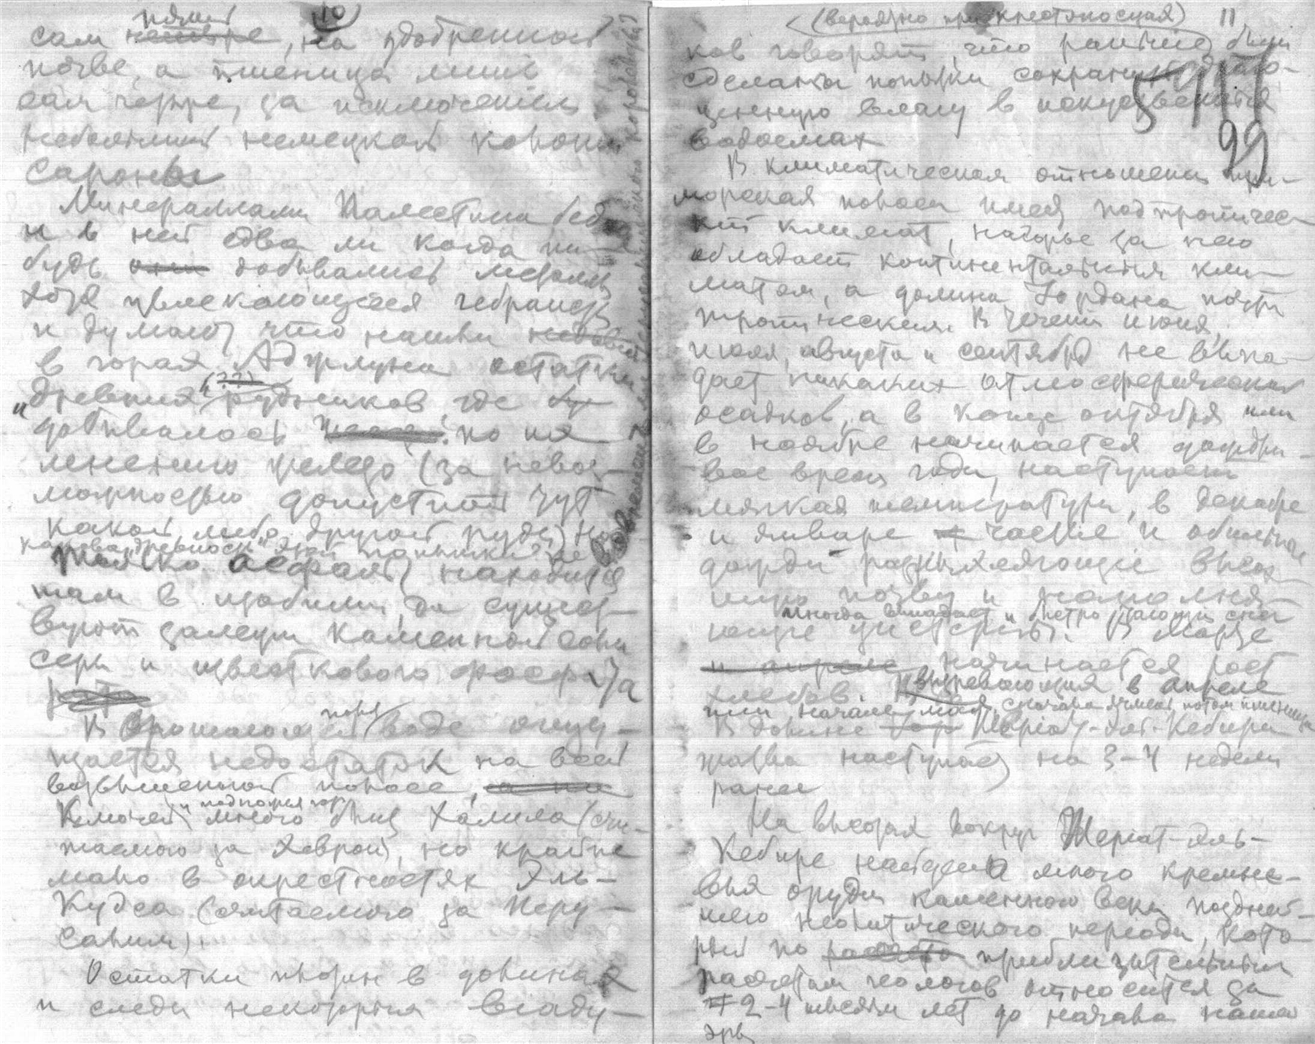 10
пять
сам , на удобренной
почве, а пшеница лишь
сам четыре, за исключением
небольшой немецкой колонии
Сароны
Минералами Палестина бедна
и в ней едва ли когда ни-
будь добывались металлы
хотя увлекающиеся гебраисты
и думают что нашли
в горах Аджлуна остатки
"древних (??) рудников, где
добывалось по их
мнению железо (за невоз-
можностью допустить тут
какой либо другой руды) Но
только асфальт находится
там в изобилии да сущест-
вуют залежи каменной соли
серы и известкового фосфата
В прошлой воде ощу-
щается недостаток на всей
возвышенной полосе,
Ключей много близ Халила (счи-
таемого за Хеврон), но крайне
мало в окрестностях Эль-
Кудса (считаемого за Иеру-
салим).
Остатки плотин в долинах
и следы некоторых акведу-
(вероятно при крестоносцах) 11
ков говорят, что раньше были
сделаны попытки сохранить драго-
ценную влагу в искусственных
водоемах
99
В климатическом отношении при-
морская полоса имеет подтропичес-
кий климат, нагорье за нею
обладает континентальным кли-
матом, а долина Иордана почти
тропическим. В течении июня,
июля, августа и сентября не выпа-
дает никаких атмосферических
осадков, а в конце октября или
в ноябре начинается дождли-
вое время года, наступает
мягкая температура, в декабре
и январе частые и обильные
дожди разрыхляющие высох-
шую почву и наполня-
иногда выпадает и быстро тающий снег
ющие цистерны. В марте
начинается рост
хлебов. вызревающих в апреле
или начале мая, сначала ячмень потом пшеница
В долине Шериат-эль-Кебира
жатва наступает на 3-4 недели
ранее
На высотах вокруг Шериат-эль-
Кебире найдено много кремне-
вых орудий каменного века поздней-
шего неолитического периода, кото-
рый по приблизительным
расчетам геологов относится за
2-4 тысячи лет до начала нашей
эры